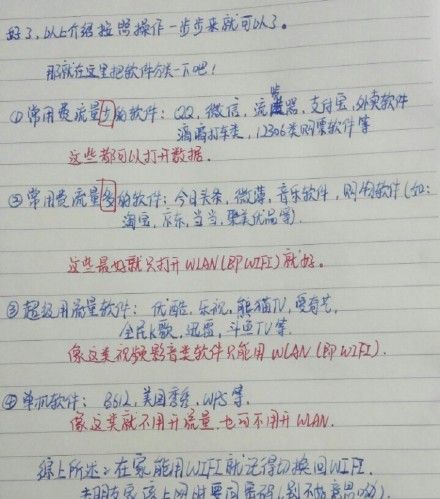 好了,以上介绍按照操作一步步来就可以了。
那就在这里把软件分类一下吧!
①常用费流量少的软件:QQ,微信,流览器,支付宝,外卖软件
滴滴打车类,12306类购票软件等
这些都可以打开数据。
②常用费流量多的软件:今日头条,微薄,音乐软件,购物软件(如:
淘宝,京东,当当,聚美优品等)
这些最好就只打开WLAN(即WIFI)就好。
③超级用流量软件:优酷,乐视,熊猫TV,爱奇艺,
全民K歌,迅雷,斗鱼TV等
像这类视频影音类软件只能用WLAN(即WIFI).
④单机软件:8612,美图秀秀,WPS等.
像这类就不用开流量,也可不用开WLAN.
综上所述:在家能用WIFI就记得切换回WIFI.
去朋友家该上网时要问密码(别不好意思哟).